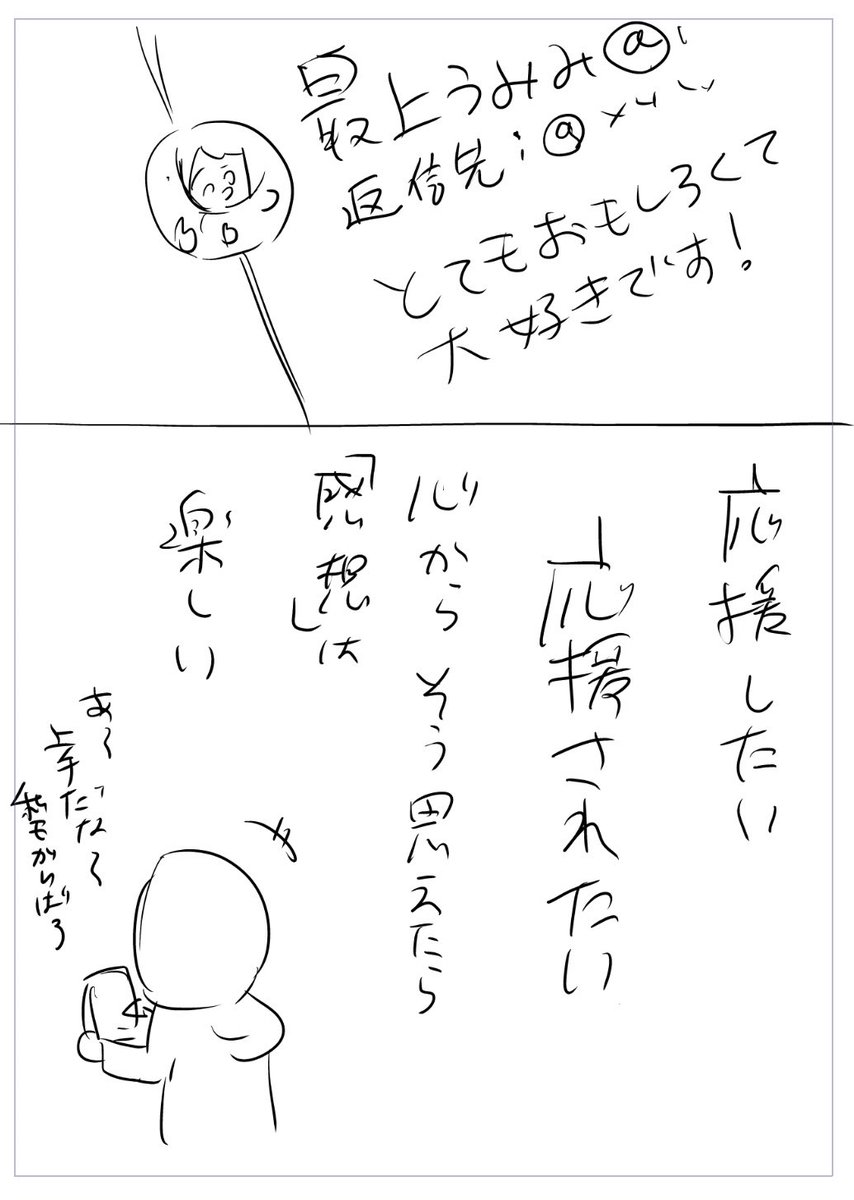 最上うみみ@
返信先:@
とてもおもしろくて
大好きです!
応援したい
応援されたい
心からそう思えたら
「感想」は
楽しい
あ〜
上手だな〜
私もがんばろ